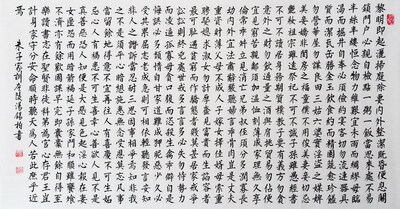 黎明即起灑掃庭除要內外整潔既昏便息關
鎖門戶必親自檢點一粥一飯當思來處不易
半絲半縷恒念物力維艱宜未雨而綢繆毋臨
渴而掘井自奉必須儉約宴客切勿流連器具
質而潔瓦缶勝金玉飲食約而精園蔬愈珍饈
勿營華屋勿謀良田三姑六婆實淫盜之媒婢
美妾嬌非閨房之福童僕勿用俊美妻妾切忌
艷妝祖宗雖遠祭祀不可不誠子孫雖愚經書
不可不讀居身務期質樸教子要有義方勿貪
意外之財勿飲過量之酒與肩挑貿易勿佔便
宜見窮苦親鄰須加溫恤刻薄成家理無久享
倫常乖舛立見消亡兄弟叔侄須分多潤寡長
幼內外宜法肅辭嚴聽婦言乖骨肉豈是丈夫
重資財薄父母不成人子嫁女擇佳婿毋索重
聘娶媳求淑女勿計厚奩見富貴而生諂容者
最可恥遇貧窮而作驕態者賤莫甚居家戒爭
訟訟則終凶處世戒多言言多必失勿恃勢力而
凌逼孤寡勿貪口腹而恣殺生禽乖僻自是
悔誤必多頹惰自甘家道難成狎昵惡少久必
受其累屈志老成急則可相依輕聽發言安知
非人之譖訴當忍耐三思因事相爭焉知非我
之不是須平心暗想施惠無念受恩莫忘凡事
當留餘地得意不宜再往人有喜慶不可生妒
忌心人有禍患不可生喜幸心善欲人見不是
真善惡恐人知便是大惡見色而起淫心報在
妻女匿怨而用暗箭禍延子孫家門和順雖饔飧
不濟亦有餘歡國課早完即囊橐無餘自得至
樂讀書志在聖賢非徒科第為官心存君國豈
計身家守分安命順時聽天為人若此庶乎近
焉
朱子家訓